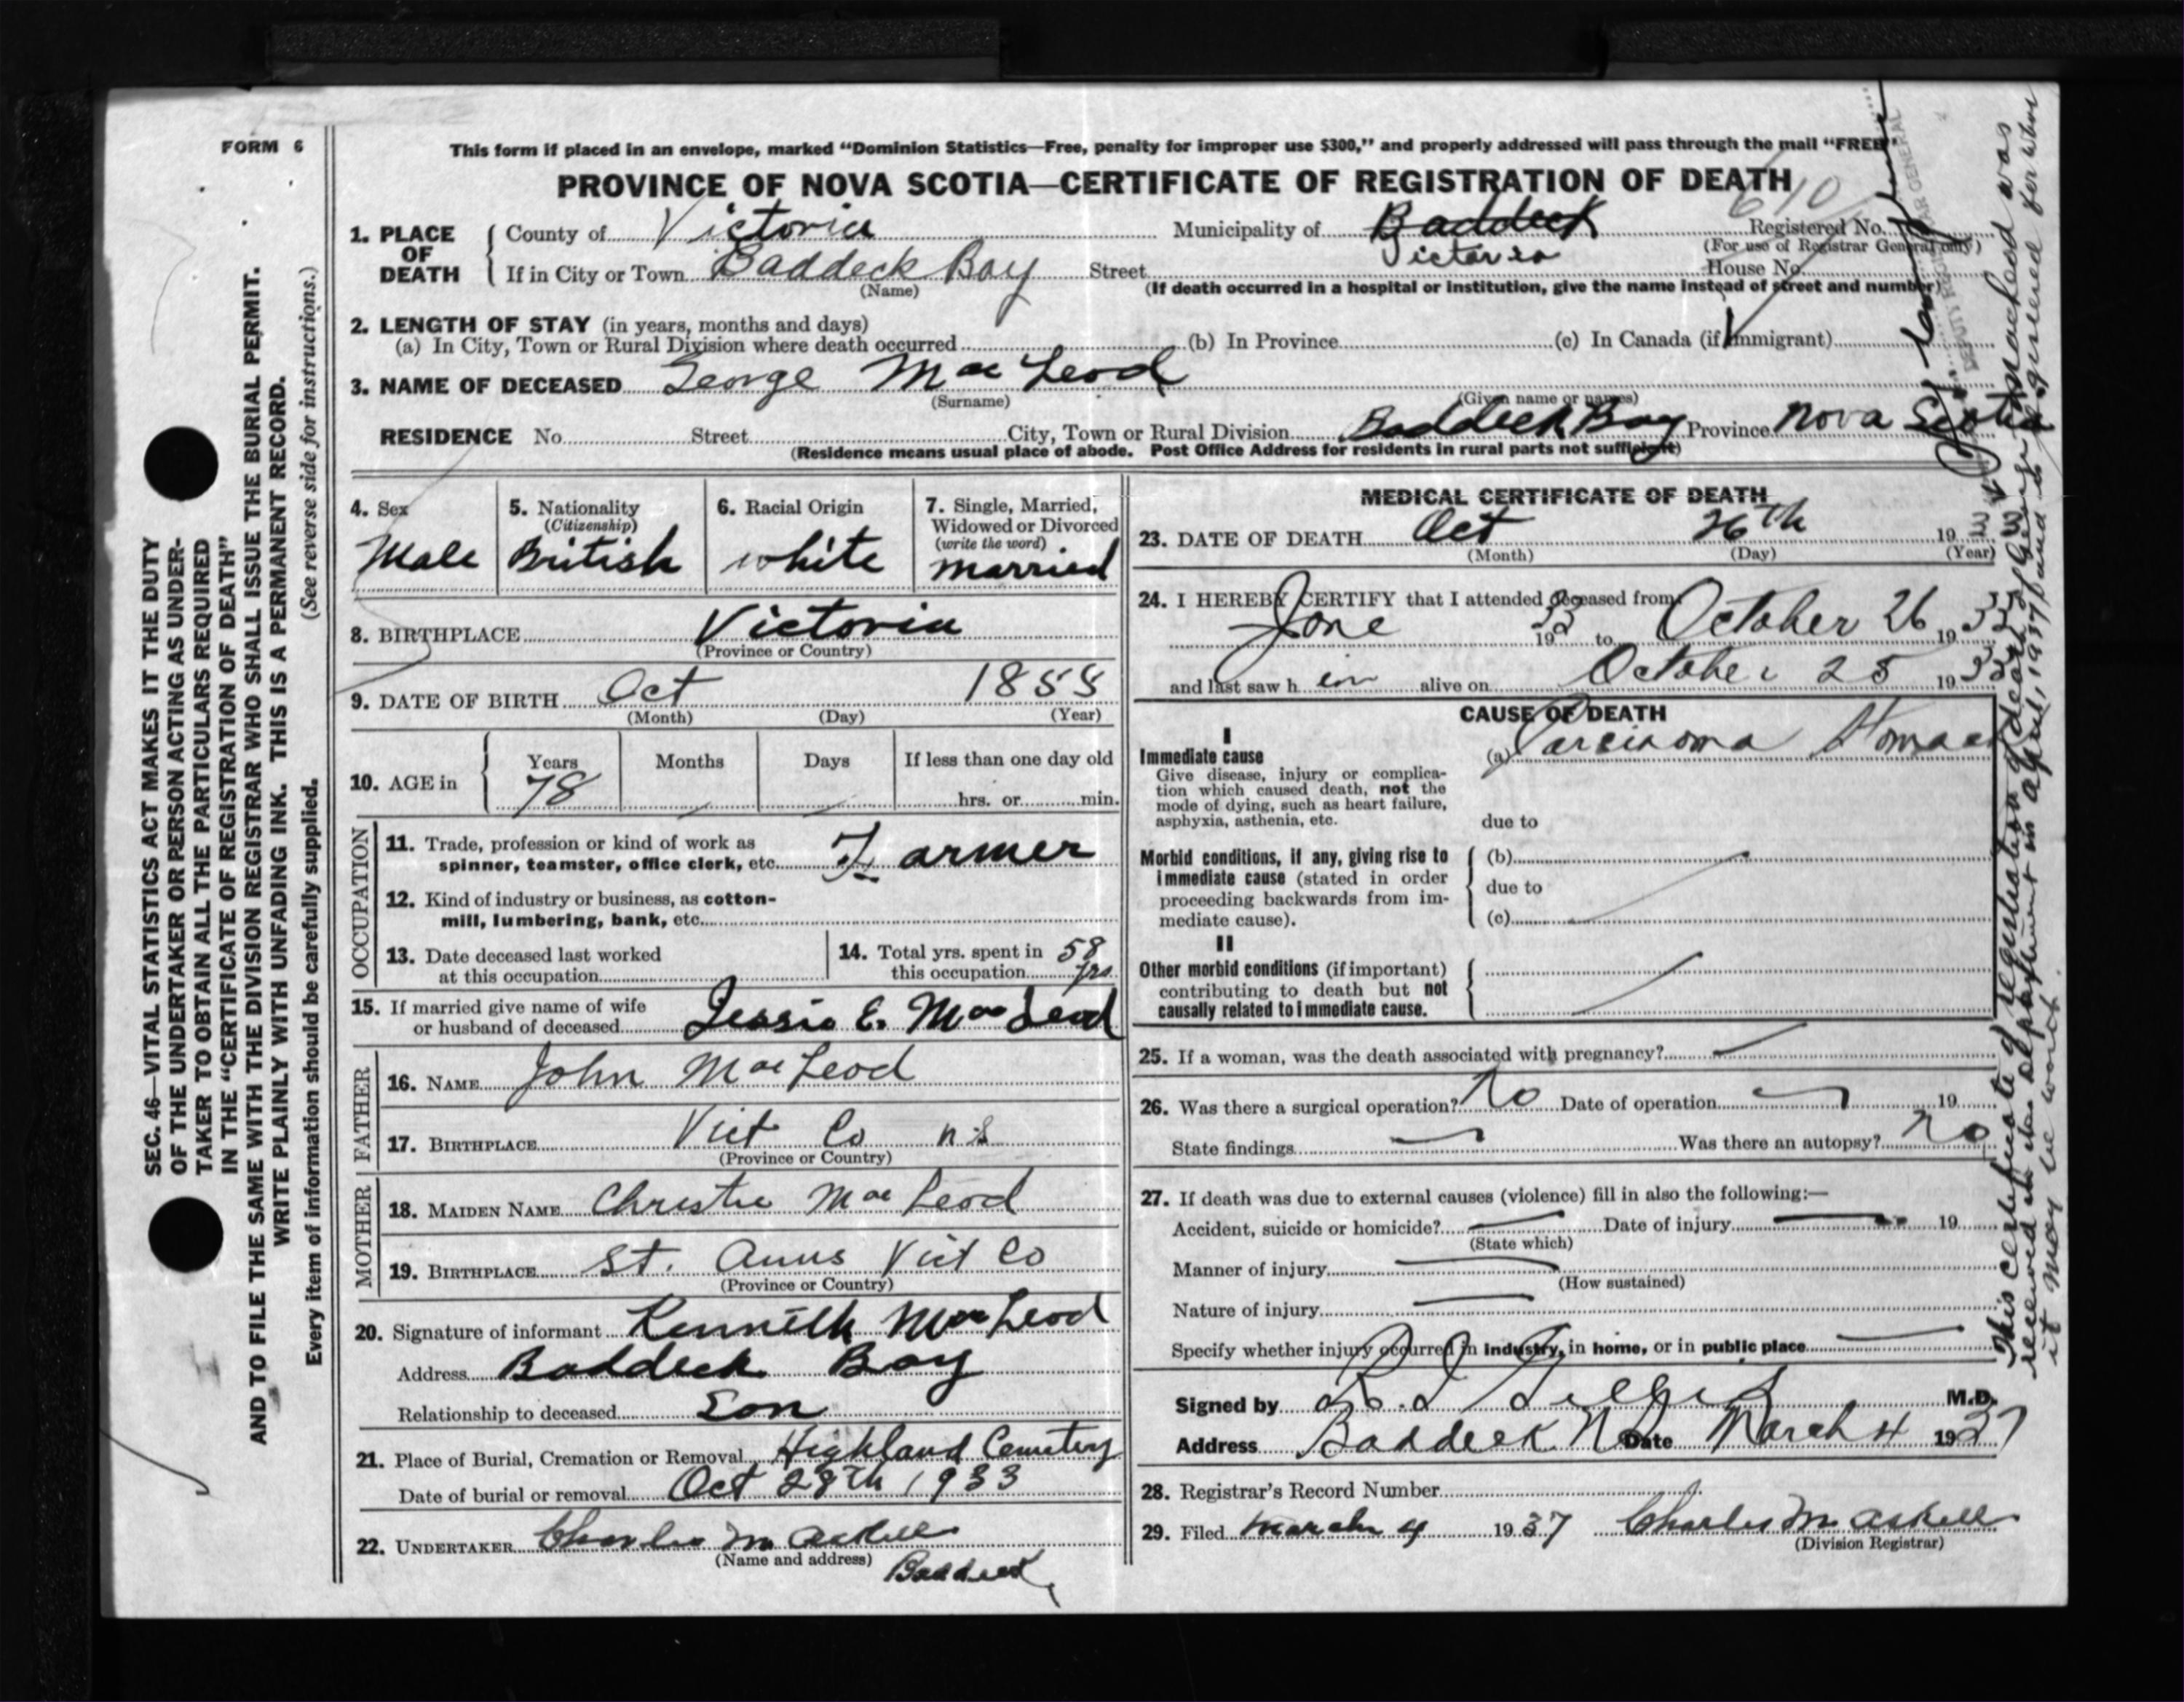 FORM 6
This form if placed in an envelope, marked "Dominion Statistics—Free, penalty for improper use $300," and properly addressed will pass through the mail "FREE"
PROVINCE OF NOVA SCOTIA—CERTIFICATE OF REGISTRATION OF DEATH
610
1. PLACE OF DEATH
County of Victoria Municipality of Baddeck Registered No.
Victoria (For use of Registrar General only)
If in City or Town Baddeck Bay Street House No.
(Name) (If death occurred in a hospital or institution, give the name instead of street and number)
2. LENGTH OF STAY (in years, months and days)
(a) In City, Town or Rural Division where death occurred (b) In Province (c) In Canada (if Immigrant)
3. NAME OF DECEASED George MacLeod
(Surname) (Given name or names)
RESIDENCE No. Street City, Town or Rural Division Baddeck Bay Province Nova Scotia
(Residence means usual place of abode. Post Office Address for residents in rural parts not sufficient)
4. Sex Male
5. Nationality (Citizenship) British
6. Racial Origin white
7. Single, Married, Widowed or Divorced (write the word) married
8. BIRTHPLACE Victoria
(Province or Country)
9. DATE OF BIRTH Oct 1855
(Month) (Day) (Year)
10. AGE in Years 78 Months Days If less than one day old
hrs. or min.
OCCUPATION
11. Trade, profession or kind of work as
spinner, teamster, office clerk, etc. Farmer
12. Kind of industry or business, as cotton-
mill, lumbering, bank, etc.
13. Date deceased last worked
at this occupation
14. Total yrs. spent in
this occupation 58 yrs
15. If married give name of wife
or husband of deceased Jessie E. MacLeod
FATHER
16. NAME John MacLeod
17. BIRTHPLACE Vict Co N.S
(Province or Country)
MOTHER
18. MAIDEN NAME Christie MacLeod
19. BIRTHPLACE St. Anns Vict Co
(Province or Country)
20. Signature of informant Kenneth MacLeod
Address Baddeck Bay
Relationship to deceased Son
21. Place of Burial, Cremation or Removal Highland Cemetery
Date of burial or removal Oct 28th 1933
22. UNDERTAKER Charles McAskill
(Name and address) Baddeck
MEDICAL CERTIFICATE OF DEATH
23. DATE OF DEATH Oct 26th 1933
(Month) (Day) (Year)
24. I HEREBY CERTIFY that I attended deceased from
June 1933 to October 26 1933
and last saw him alive on October 25 1933
CAUSE OF DEATH
I
Immediate cause (a) Carcinoma Stomach
Give disease, injury or complica-
tion which caused death, not the
mode of dying, such as heart failure,
asphyxia, asthenia, etc. due to
Morbid conditions, if any, giving rise to (b)
immediate cause (stated in order due to
proceeding backwards from im-
mediate cause). (c)
II
Other morbid conditions (if important)
contributing to death but not
causally related to immediate cause.
25. If a woman, was the death associated with pregnancy?
26. Was there a surgical operation? No Date of operation 19
State findings Was there an autopsy? No
27. If death was due to external causes (violence) fill in also the following:—
Accident, suicide or homicide? Date of injury 19
(State which)
Manner of injury
(How sustained)
Nature of injury
Specify whether injury occurred in industry, in home, or in public place
Signed by M.D.
Address Baddeck N.S. Date March 4 1937
28. Registrar's Record Number
29. Filed March 4 1937 Charles McAskill
(Division Registrar)
SEC. 46—VITAL STATISTICS ACT MAKES IT THE DUTY
OF THE UNDERTAKER OR PERSON ACTING AS UNDER-
TAKER TO OBTAIN ALL THE PARTICULARS REQUIRED
IN THE "CERTIFICATE OF REGISTRATION OF DEATH"
AND TO FILE THE SAME WITH THE DIVISION REGISTRAR WHO SHALL ISSUE THE BURIAL PERMIT.
WRITE PLAINLY WITH UNFADING INK. THIS IS A PERMANENT RECORD.
(See reverse side for instructions.)
Every item of information should be carefully supplied.
This certificate of registration of death attached was
received in the department in April, 1937, and is registered for what
it may be worth.
DEPUTY REGISTRAR GENERAL